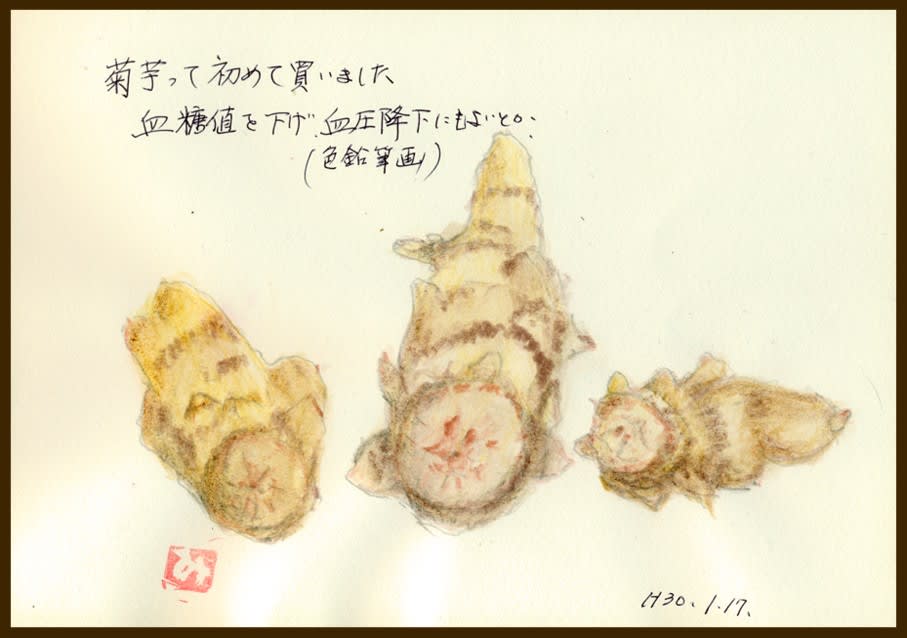 菊芋って初めて買いました
血糖値を下げ、血圧降下にもよいと。
(色鉛筆画)
み
H30.1.17.